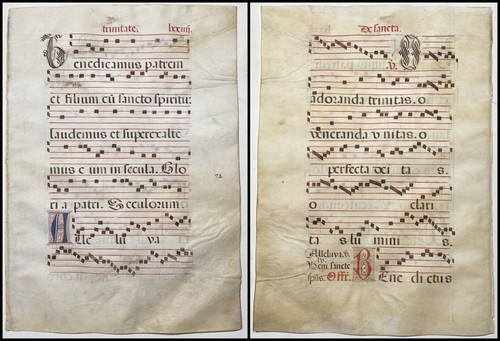 trinitate. lxxiiij.
Benedicamus patrem
et filium cū sancto spiritu:
laudemus et superexalte
mus e um in secula. Glo
ri a patri. Seculorum
Alle lu ya
De sancta.
v. O
adoranda trinitas. o
veneranda v nitas. o
perfecta dei ta s.
o clari
ta s lu mini s.
Alleluya. v.
Veni sancte
sp̄us. Offr̄. Bene di ctus